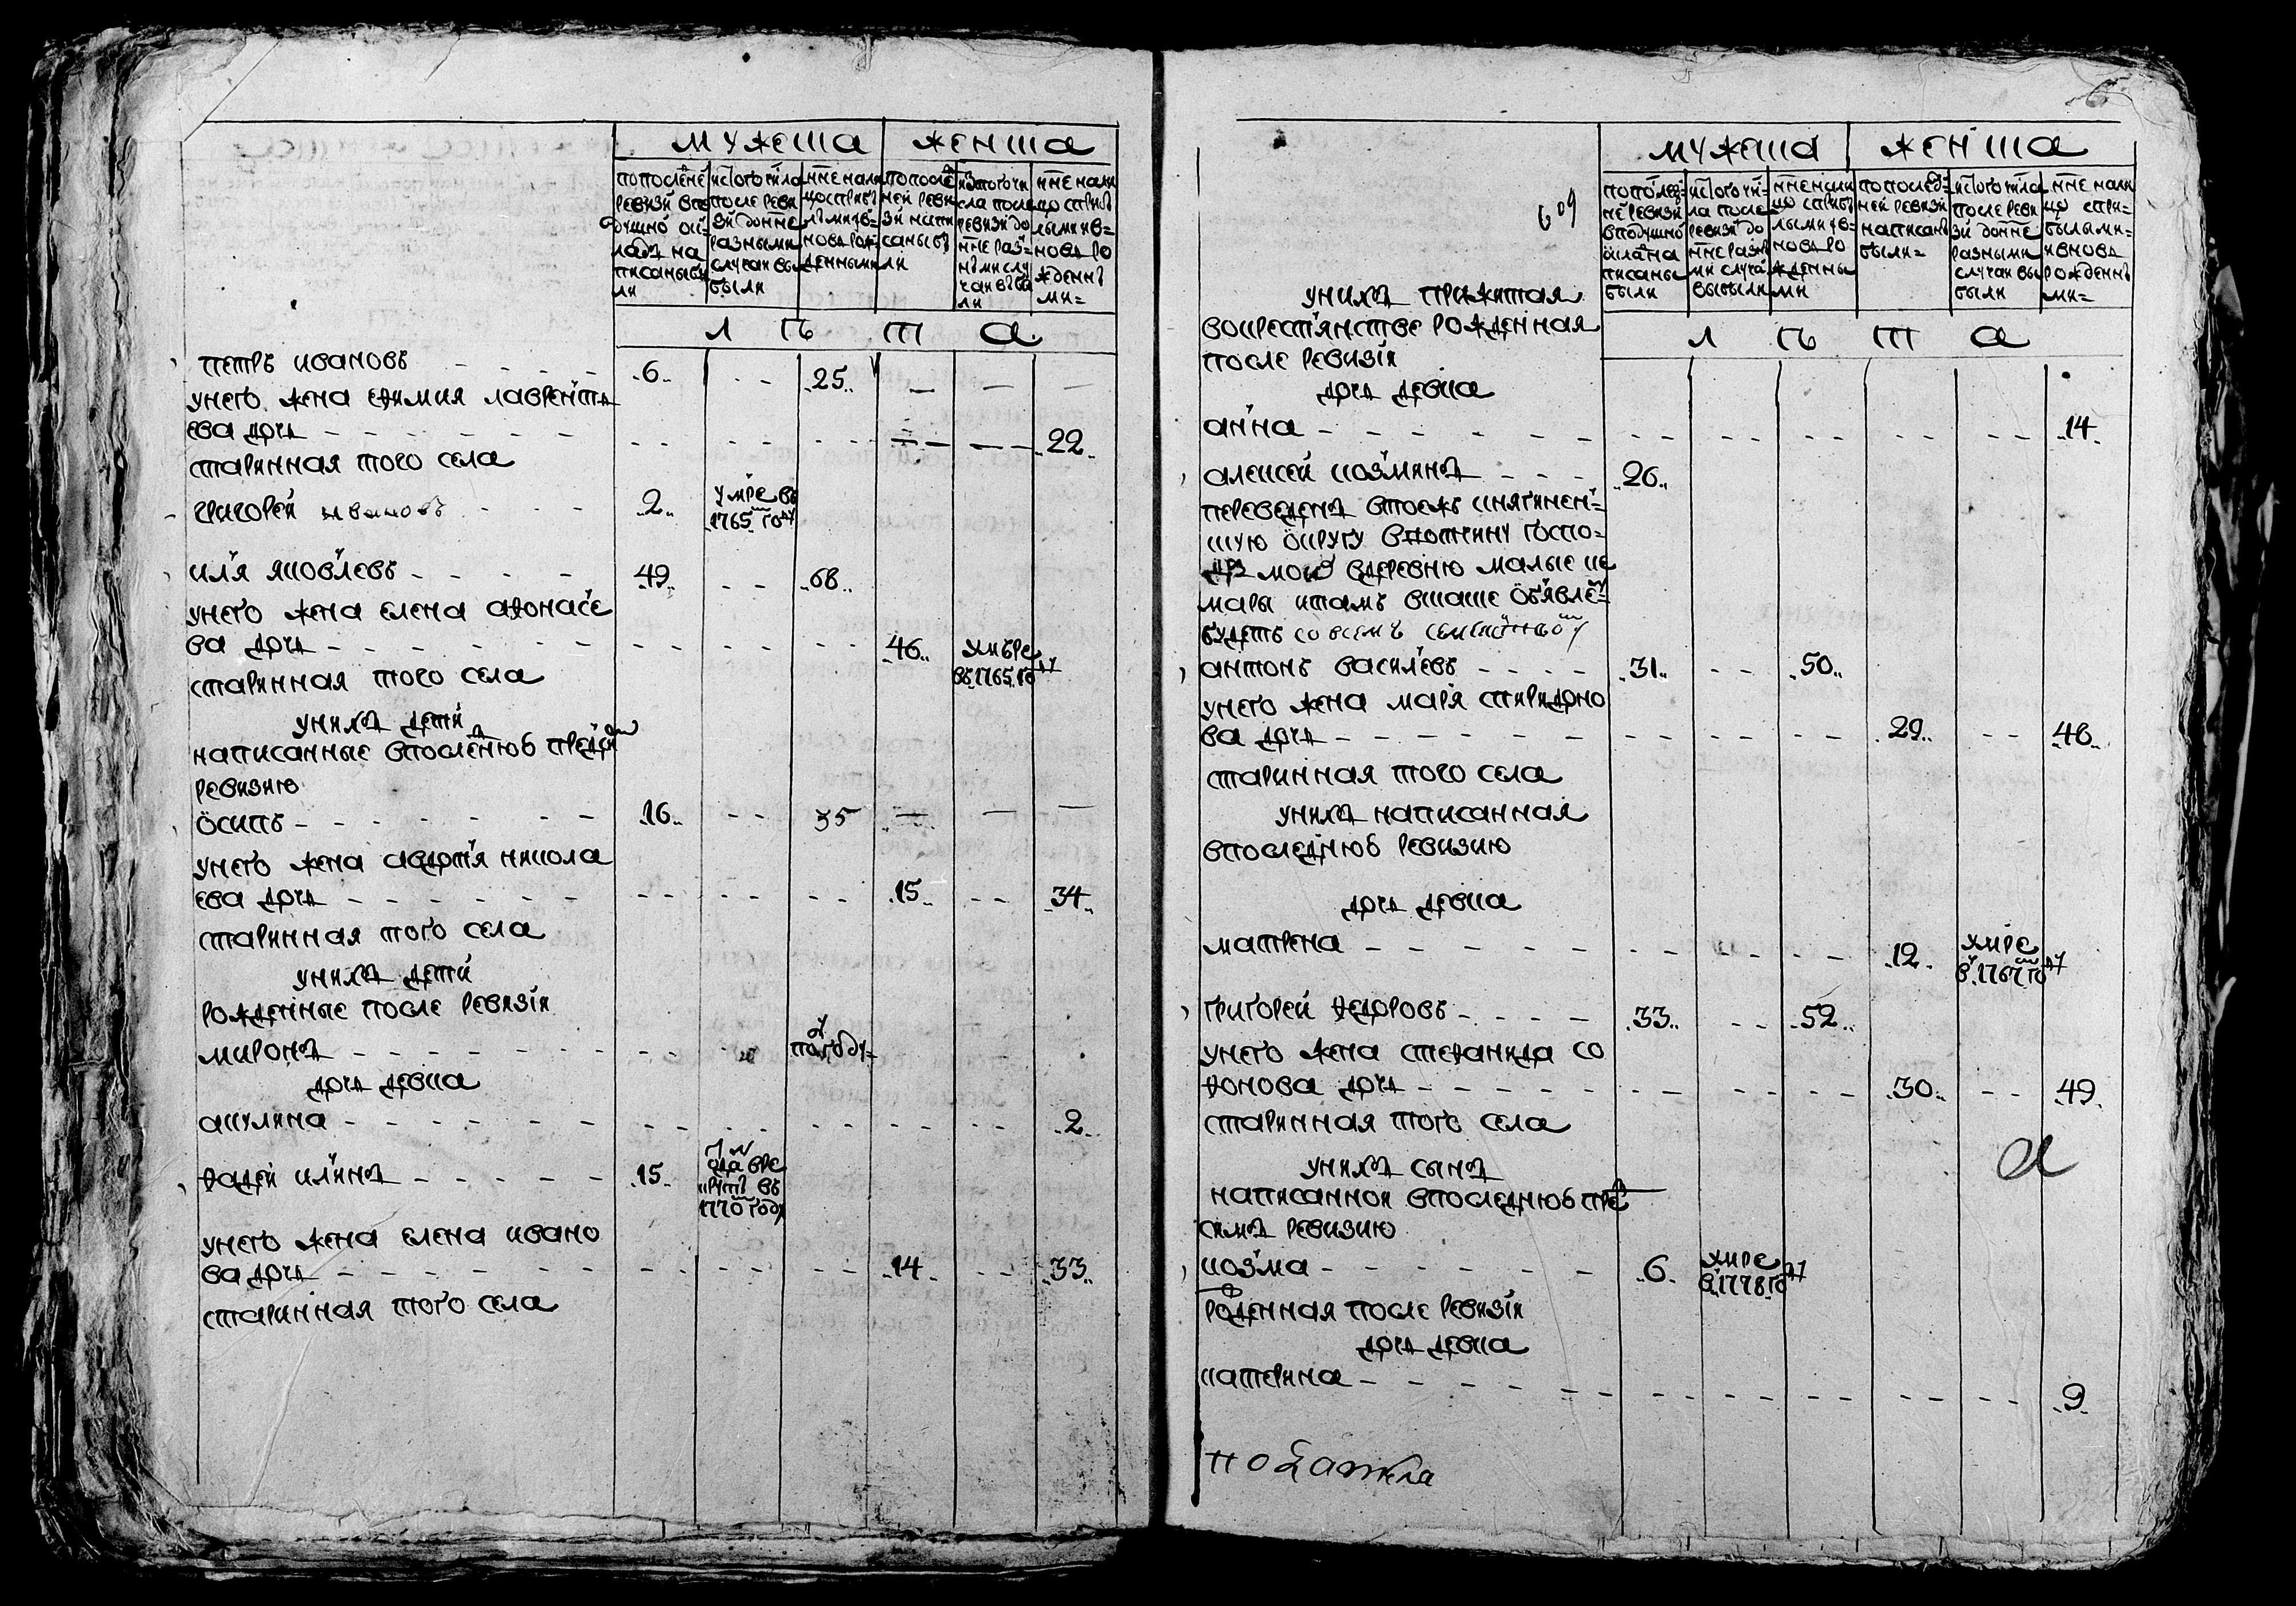 мужеска женска
попоследнеи ревизи вподушнои окладъ написаны были
истого числа после ревизи донне разными случаи выбыли
нне налицо сприбылыми ивновь рожденными
попоследнеи ревизи написаны были
истого числа после ревизи донне разными случаи выбыли
нне налицо сприбылыми ивновь рожденными
лъта
петръ ивановъ 6 25
унего жена ефимия лаврентьева дочь 22
старинная того села
григореи ивановъ 2 умре въ 1765 году
илья яковлевъ 49 68
унего жена елена афонасева дочь 46 умре въ 1765 году
старинная того села
унихъ дети
написанные впоследнюю предсимъ
ревизию
осипъ 16 35
унего жена авдотья николаева дочь 15 34
старинная того села
унихъ дети
рожденные после ревизiи
миронъ полгоду
дочь девка
акулина 2
фадеи ильинъ 15 отдан врекруты въ 1770 году
унего жена елена иванова дочь 14 33
старинная того села
609
мужеска женска
пополедней ревизи вподушнои окладъ написаны были
истого числа после ревизи донне разными случаи выбыли
нне налицо сприбылыми ивновь рожденными
попоследней ревизи написаны были
истого числа после ревизи донне разными случаи выбыли
нне налицо сприбылыми ивновь рожденными
лъта
унихъ прижитая
вокрестьянстве рожденная
после ревизiи
дочь девка
анна 14
алексеи козминъ 26
переведенъ втоежъ княгинен=
скую округуввотчину госпо=
дрз моихъ вдеревню малые ке
мары итамъ вскаске объявленъ
будетъ совсемъ семействомъ
антонъ васильевъ 31 50
унего жена марья спиридоно
ва дочь 29 48
старинная того села
унихъ написанная
впоследнюю ревизию
дочь девка
матрена 12 умре в 1767 году
григореи федоровъ 33 52
унего жена стефанида со
фонова дочь 30 49
старинная того села
унихъ сынъ
написаннои впоследнюю пред
симъ ревизию
козма 6 умре в 1778 году
рожденная после ревизiи
дочь девка
катерина 9